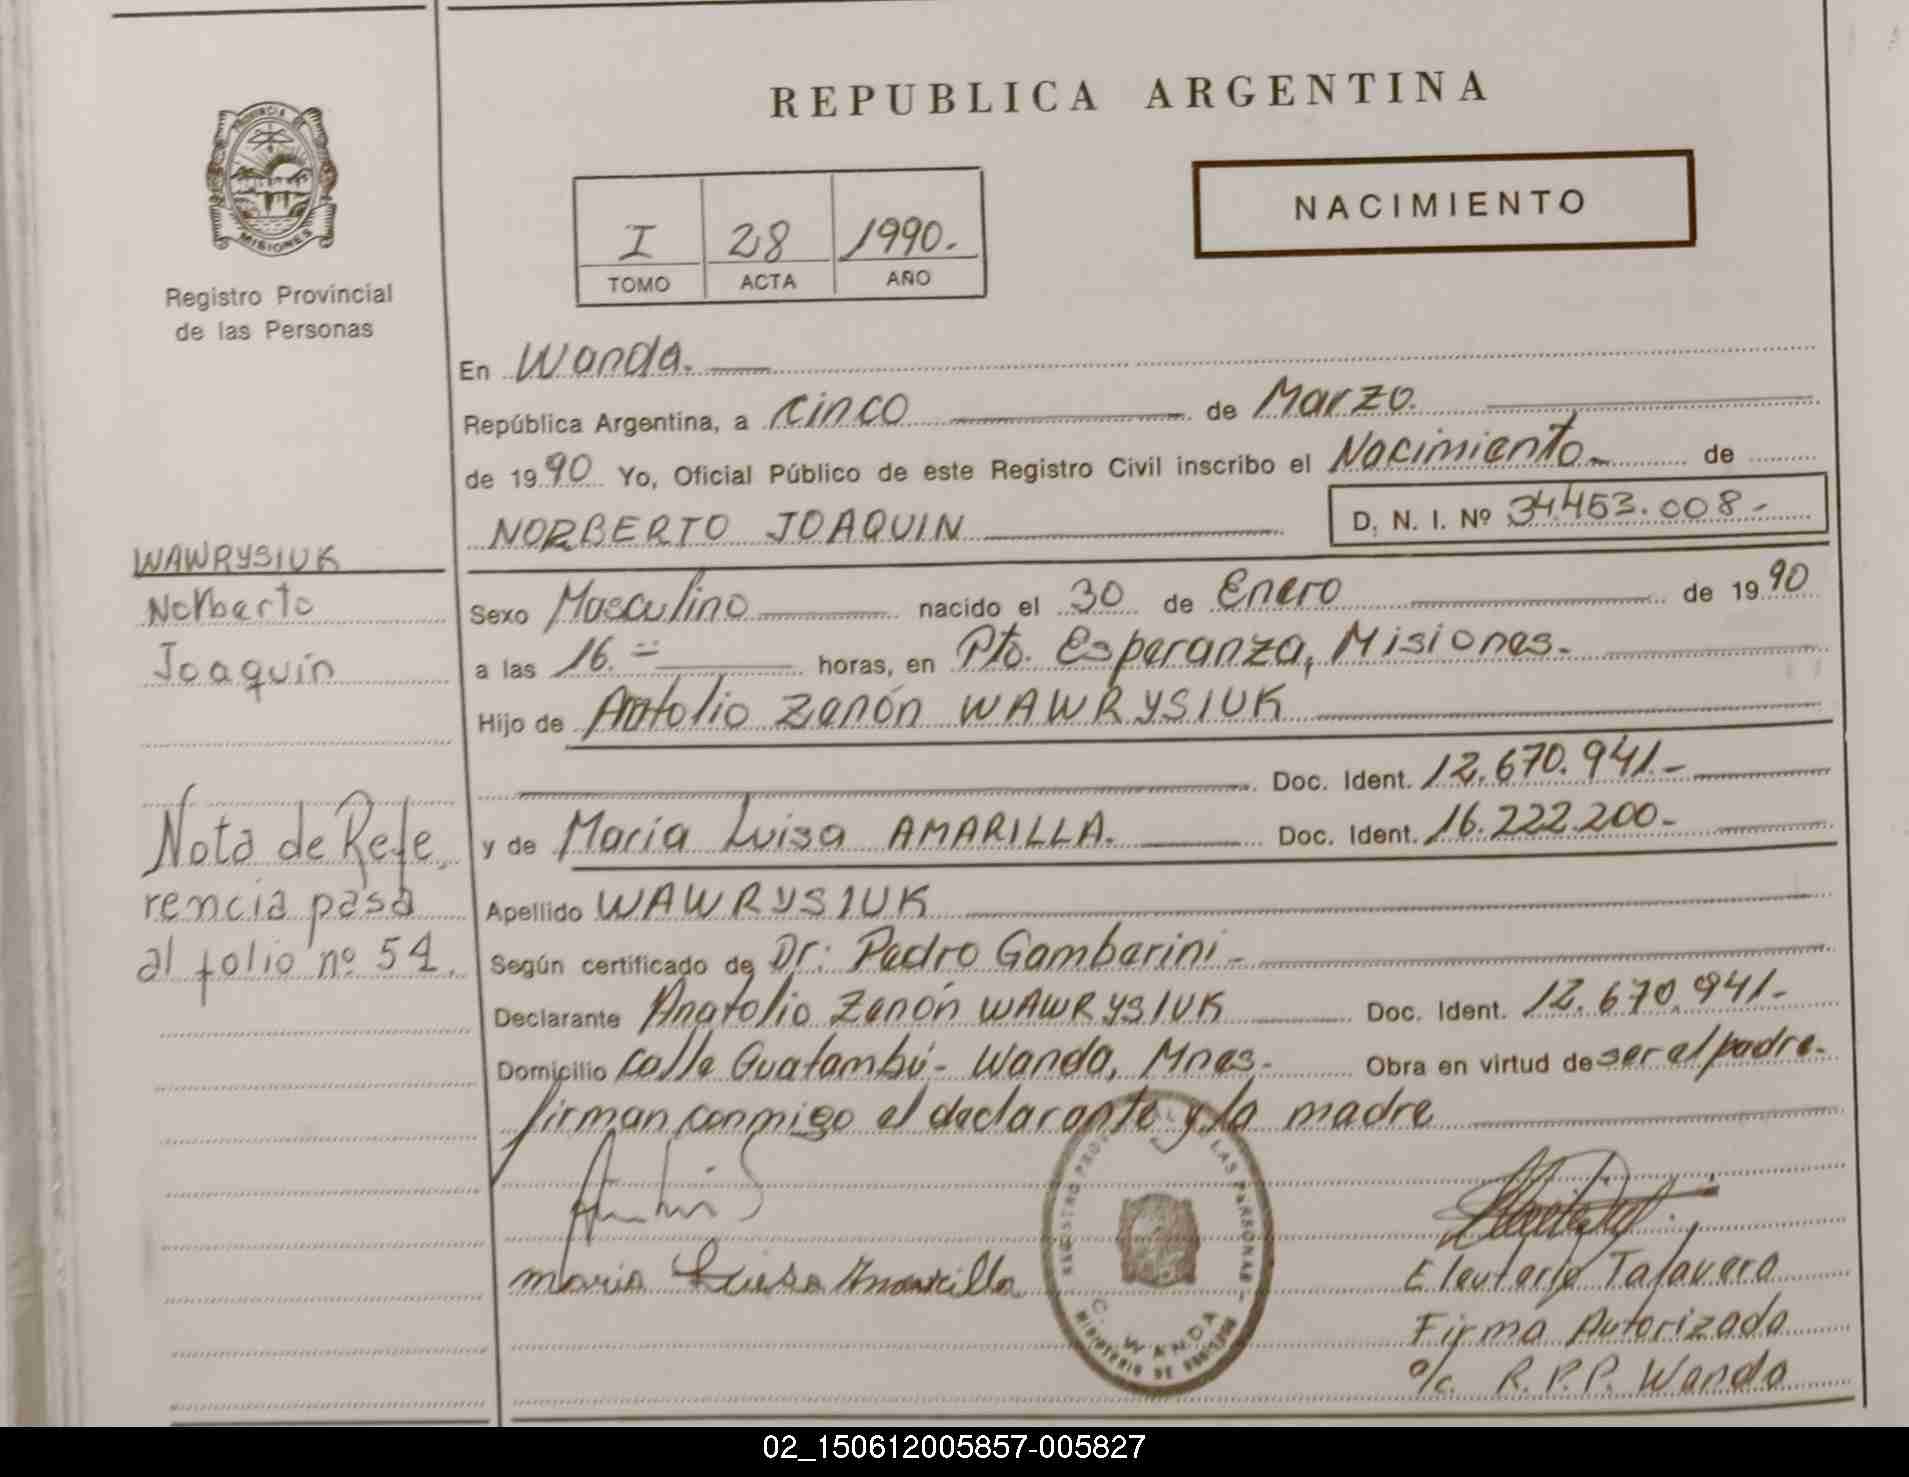 REPUBLICA ARGENTINA
PROVINCIA DE
MISIONES
Registro Provincial
de las Personas
I 28 1990.
TOMO ACTA AÑO
NACIMIENTO
En Wanda.
República Argentina, a cinco de Marzo.
de 1990 Yo, Oficial Público de este Registro Civil inscribo el Nacimiento de
NORBERTO JOAQUIN D. N. I. Nº 34.453.008-
WAWRYSIUK
Norberto
Joaquín
Sexo Masculino nacido el 30 de Enero de 1990
a las 16.= horas, en Pto. Esperanza, Misiones.
Hijo de Antolio Zenón WAWRYSIUK
Doc. Ident. 12.670.941-
y de María Luisa AMARILLA. Doc. Ident. 16.222.200-
Apellido WAWRYSIUK
Según certificado de Dr: Pedro Gamberini-
Declarante Anatolio Zenón WAWRYSIUK Doc. Ident. 12.670.941-
Domicilio Calle Guatambú- Wanda, Mnes- Obra en virtud de ser el padre-
firman conmigo el declarante y la madre
Nota de Refe,
rencia pasa
al folio nº 54.
maria Luisa Amarilla
C. WANDA
Eleuterio Talavera
Firma Autorizada
o/c. R.P.P. Wanda
02_150612005857-005827